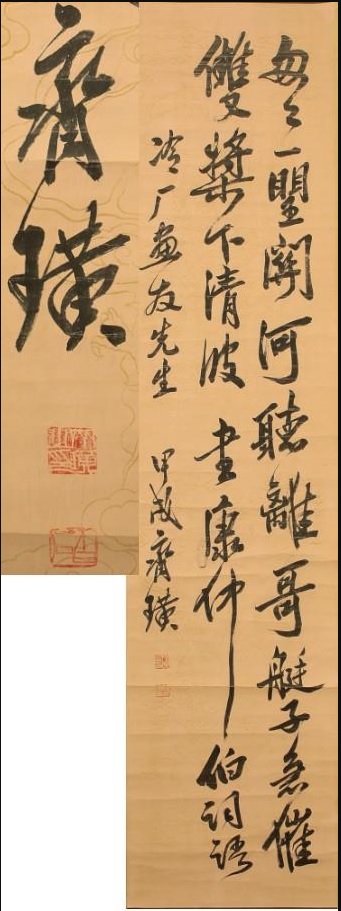 匆々一朢關河聽離哥艇子急催
雙槳下清波 書康仲伯詞語
冷厂畫友先生 甲戌齊璜
齊璜